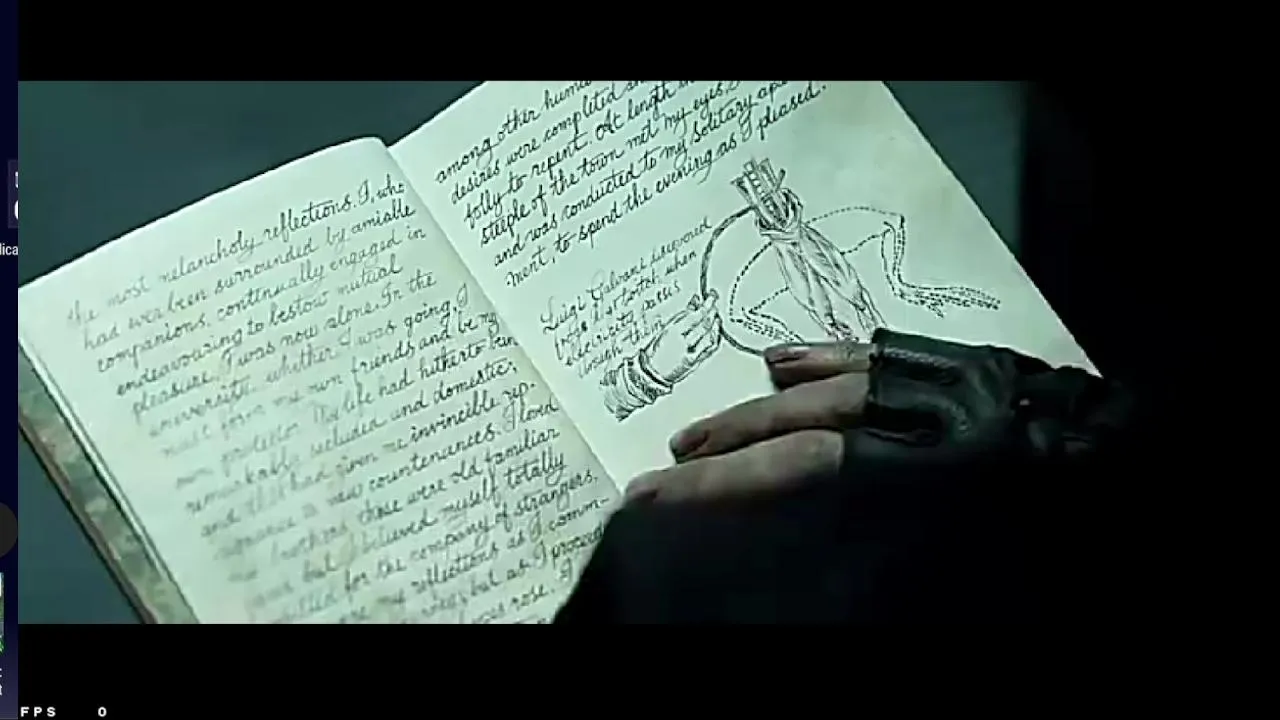 the most melancholy reflections. I, who
had ever been surrounded by amiable
companions, continually engaged in
endeavouring to bestow mutual
pleasure, I was now alone. In the
university, whither I was going, I
must form my own friends and be my
own protector. My life had hitherto been
remarkably secluded and domestic;
and this had given me invincible rep-
ugnance to new countenances. I loved
my brothers these were old familiar
faces but I believed myself totally
unfitted for the company of strangers.
were my reflections as I comm-
but as I proceed
rose. I
among other human
desires were completed and
folly to repent. At length
steeple of the town met my eyes. I
and was conducted to my solitary apa
ment, to spend the evening as I pleased.
Luigi Galvani discovered
frogs legs twitch when
electricity passes
through them
FPS 0